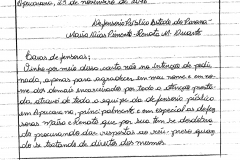 Apucarana, 25 de novembro de 2016
Defensoria Pública Estado do Paraná-
Maria Dias Pimente - Renata M. Duarte
Caras defensoras;
Venho por meio dessa carta não na intenção de pedi
nada, apenas para agradecer em meu nome e em no-
me dos demais encarcerados por todo a atenção presta-
da através de toda a equipe da defensoria pública
em Apucarana, principalmente, e em especial as defen-
soras maria e Renata que por sua tem se dedicado
de procurando dar respostas ao réu: preso quan-
do se tratando de direito dos mesmos.